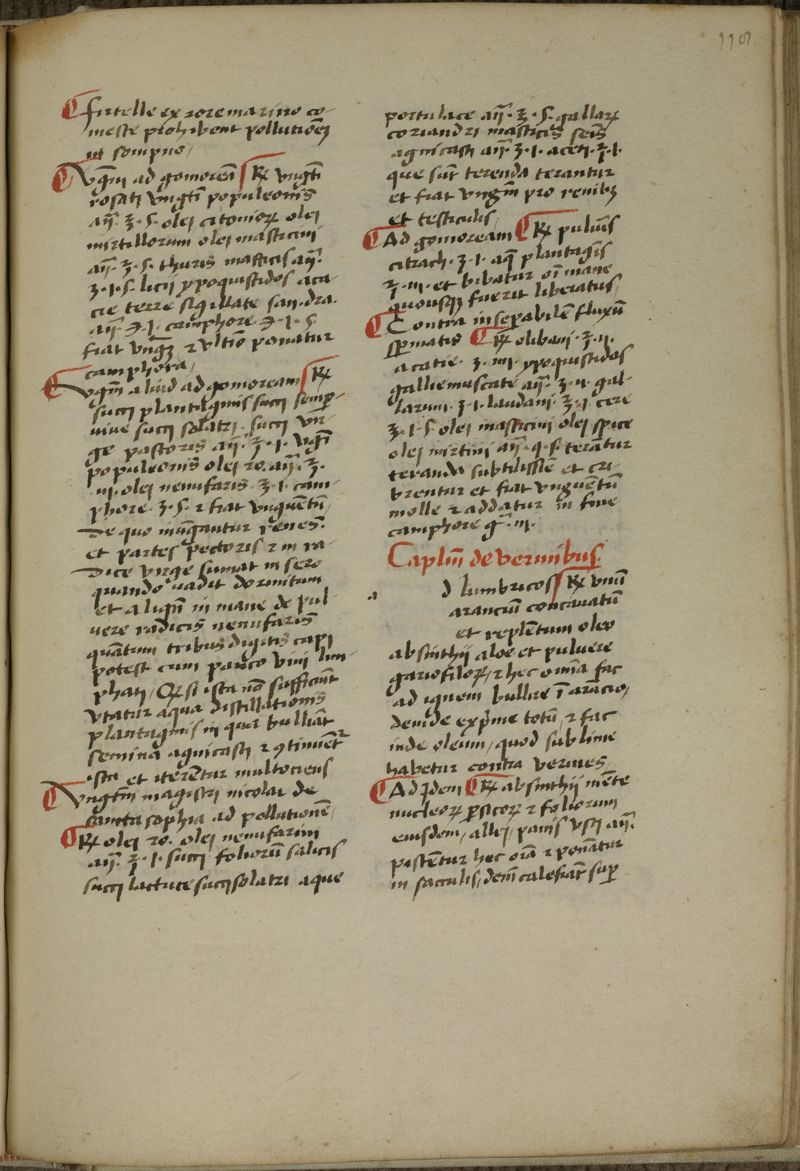 118
¶ frittelle ex rore marino co-
meste prohibent pollutiõeȝ
ut sompno /
¶ Vgm̃ ad gomoreã ℞ vngti
rosati vngti populeonis
añ ʒ s. olei citonioꝝ olei
mirtillorum olei masticini
añ. ʒ. s. thuris masticis añ.
ʒ. i. s. licii ypoquistidos aca-
cie terre sigillate san. dra.
añ. ℈. i. camphore. ℈. i. s.
fiat vngȝ ⁊ vltio ponatur
camphora /
¶ Vgm̃ aliud ad gomoream ℞
succi plantaginis succi semp̲
vive succi solatri. succi vir-
ge pastoris añ. ʒ. i. vgti
populeonis olei ro. añ. ʒ.
iii. olei nenufaris ʒ. i. cam-
phore. ʒ. s. ⁊ fiat vnguẽtũ,
De quo inũgantur renes
et partes pectoris ⁊ in ra-
dice virge sumat in sero
quando vadit dormitum
et aliqm̃ in mane de pul-
vere radicis nenufaris
quãtum tribus digitis capi
potest cum pauco vini lim-
phati, Qȝ si ista nõ sufficiũt
vtatur aqua distillationis
plantaginis in qua bulliãt
semina agnicasti ⁊ ꝯtinuẽtr̃
ista et iterẽtur multociens
¶ Vngtm̃ magistri nicolai de
sancta sophia ad pollutionẽ,
¶ ℞ olei ro. olei nenufarini
añ. ʒ. i. succi foliorũ salicis
succi lactuce succi solatri aque
portulace añ. ʒ. s. gallaꝝ
coriandri masticis seĩs
agnicasti añ. ʒ. i. aceti. ʒ. i.
que sũt terenda terantur
et fiat vngm̃ pro renibȝ
et testiculis /
¶ Ad gomoream ¶ ℞ pulṽis
citrach. ʒ. i. aq̃ plantagĩs
ʒ. iii. et bibatur oĩ mane
quousqȝ fuerit liberatus,
¶ Contra insep̲abilẽ fluxũ
sp̲matis ¶ ℞ olibani. ʒ. ii.
acatie. ʒ. iii. ypoquistidos
gallie muscate añ. ʒ. ii. gal-
larum. ʒ. i. laudani. ʒ. i. cere
ʒ. i. s. olei masticini olei spice
olei mirtini añ. q. s. terãtur
teranda subtilissĩe et cri-
brentur et fiat vnguẽtũ
molle ⁊ addatur in fine
camphore g̃. iii.
Caplm̃ de vermibus
a d lumbricos ℞ vnũ
aranciũ concavatũ
et replẽtum oleo
absinthii aloe et pulvere
gariofiloꝝ, ⁊ hec om̃ia fac
ad ignem bullire ĩ arãcio,
Deinde exp̃me totũ, ⁊ fac
inde oleum, quod sublime
habetur contra vermes
¶ Ad idem ¶ ℞ absinthii mẽte
nucleoꝝ p̲sicoꝝ ⁊ foliorum
eiusdem, allei, panis vsti añ.
pistẽtur hec oĩa ⁊ ponãtur
in sacculis, dem̃ calefiãt sup̲